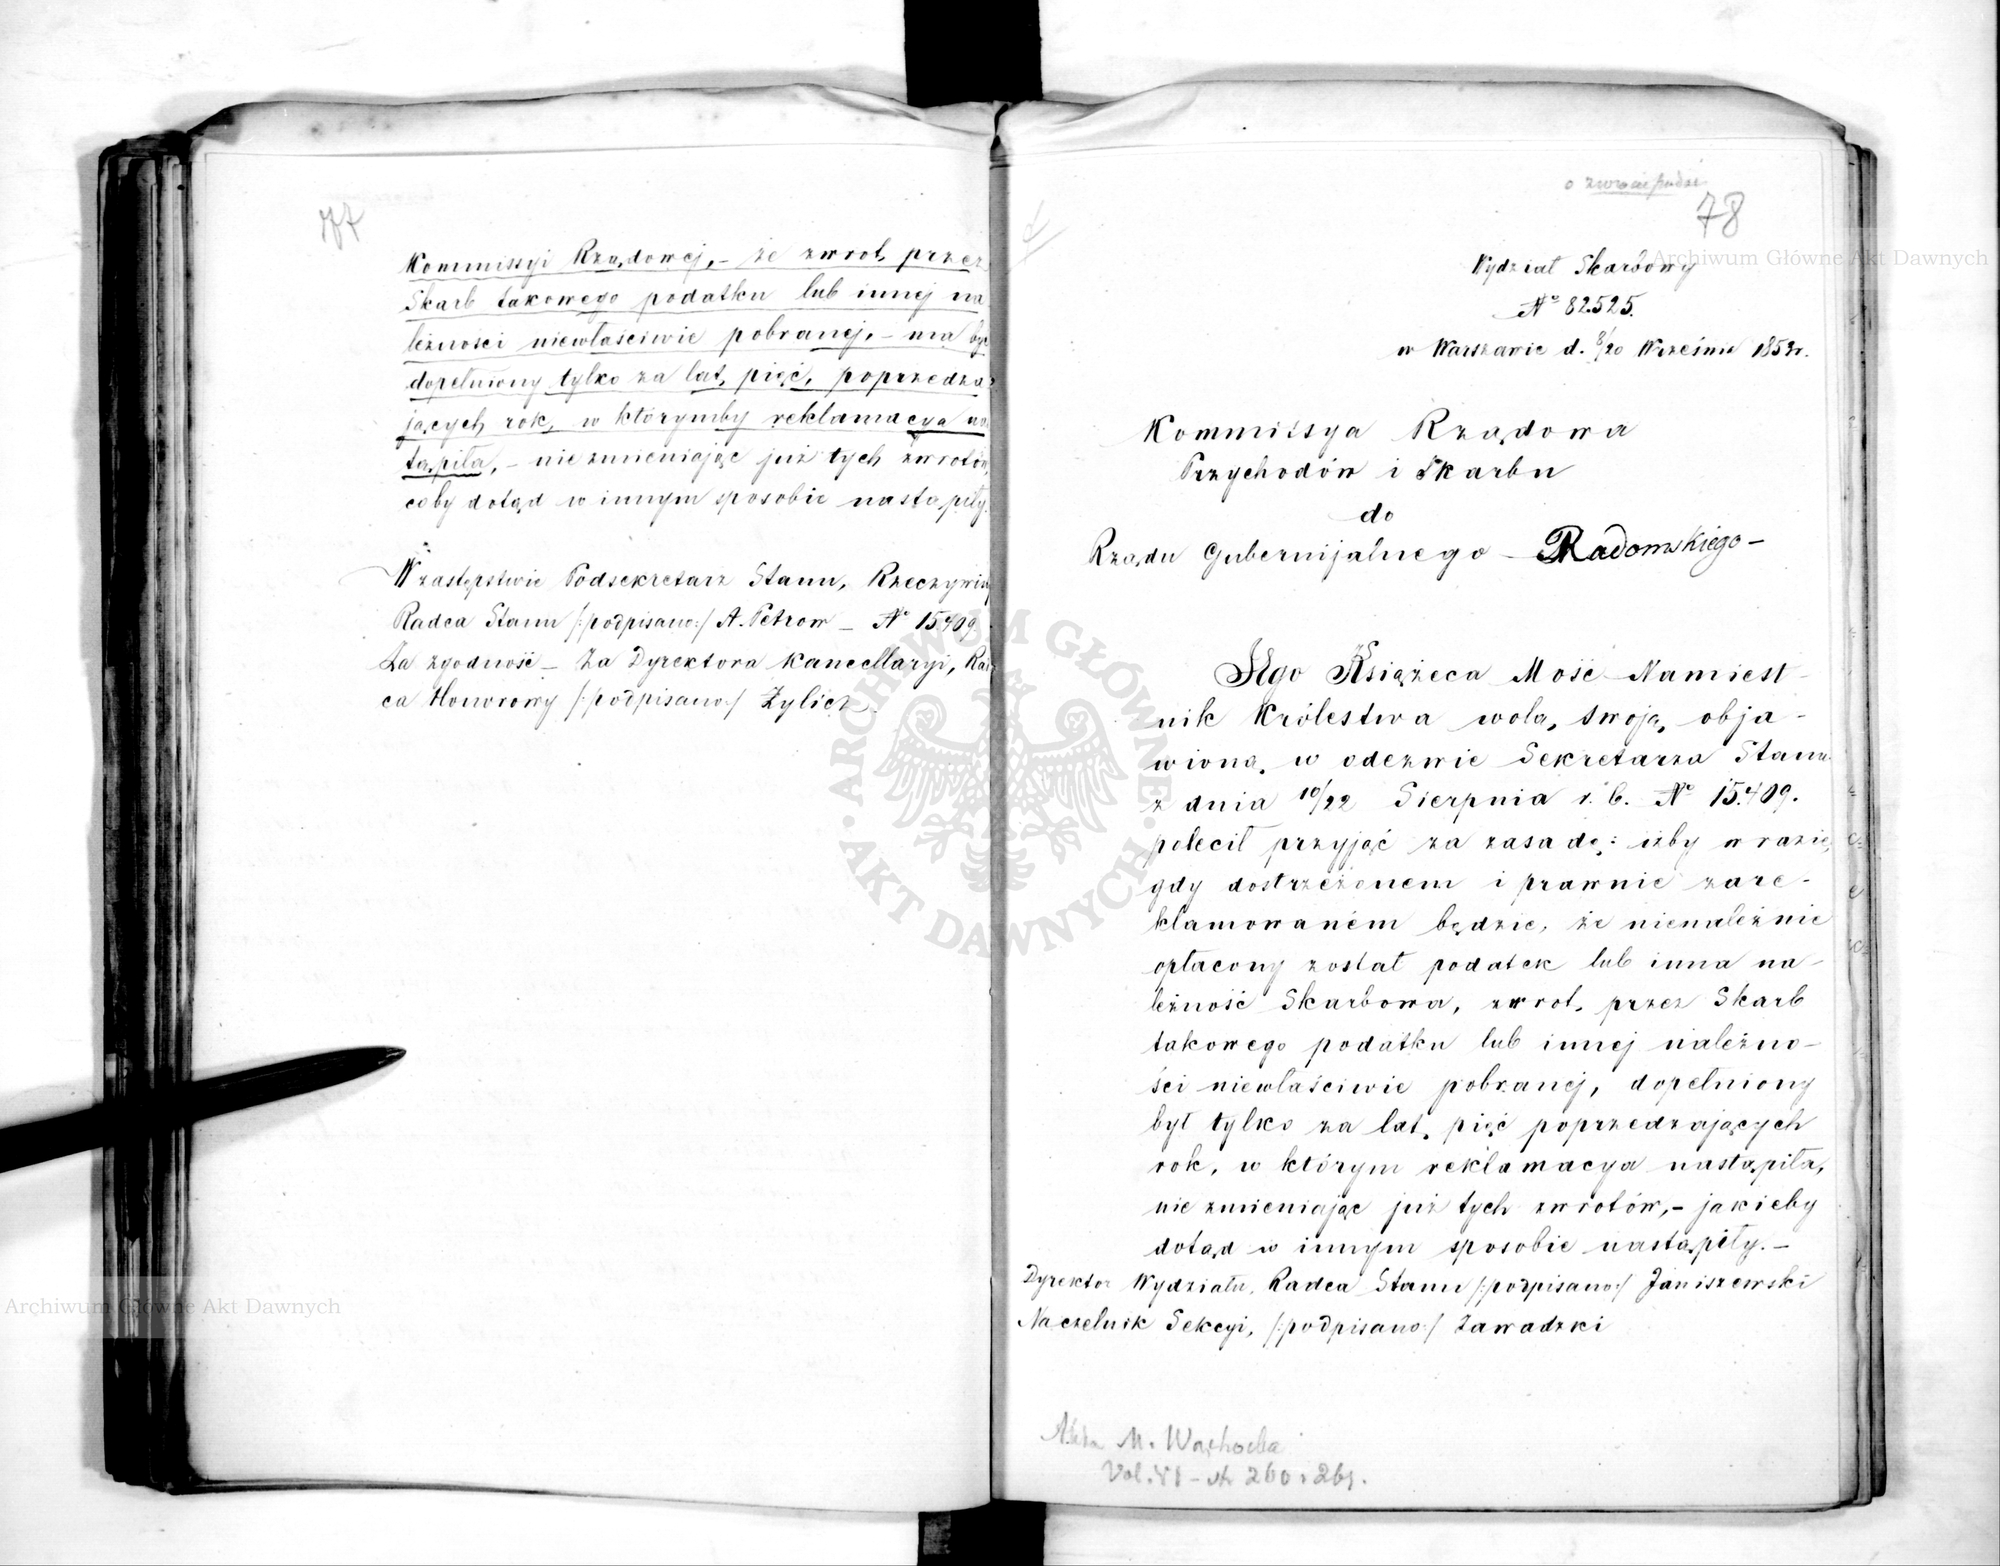 77
Kommissyi Rządowej, – że zwrot, przez
Skarb takowego podatku lub innej na
leżności niewłaściwie pobranej, – ma być
dopełniony tylko za lat, pięć, poprzedza
jących rok, w którymby reklamacya na
tąpiła, – nie zmieniając już tych zwrotów,
coby dotąd w innym sposobie nastąpiły.
W zastępstwie Podsekretarz Stanu, Rzeczywisty
Radca Stanu /:podpisano:/ A. Petrow – No 15409.
Za zgodność – Za Dyrektora Kancellaryi, Rad
ca Honorowy /:podpisano:/ Żylicz.
o zwrocie
78
Wydział Skarbowy
No 82.525.
w Warszawie d. 8/20 Września 1853r.
Kommissya Rządowa
Przychodów i Skarbu
do
Rządu Gubernijalnego – Radomskiego –
Jego Książęca Mość Namiest-
nik Królestwa wolą, swoją, obja-
wioną, w odezwie Sekretarza Stanu
z dnia 10/22 Sierpnia r. b. No 15.409.
polecił przyjąć za zasadę: iżby w razie,
gdy dostrzeżonem i prawnie zare-
klamowaném będzie, że nienależnie
opłacony został podatek lub inna na-
leżność Skarbowa, zwrot, przez Skarb
takowego podatku lub innej należno-
ści niewłaściwie pobranej, dopełniony
był tylko za lat, pięć poprzedzających
rok, w którym reklamacya nastąpiła,
nie zmieniając już tych zwrotów, – jakieby
dotąd w innym sposobie nastąpiły. –
Dyrektor Wydziału, Radca Stanu /:podpisano:/ Janiszewski
Naczelnik Sekcyi, /:podpisano:/ Zawadzki
Akta M. Wąchocka
Vol. VI – str 260 i 261.
Archiwum Główne Akt Dawnych
Archiwum Główne Akt Dawnych
· ARCHIWUM GŁÓWNE · AKT DAWNYCH ·